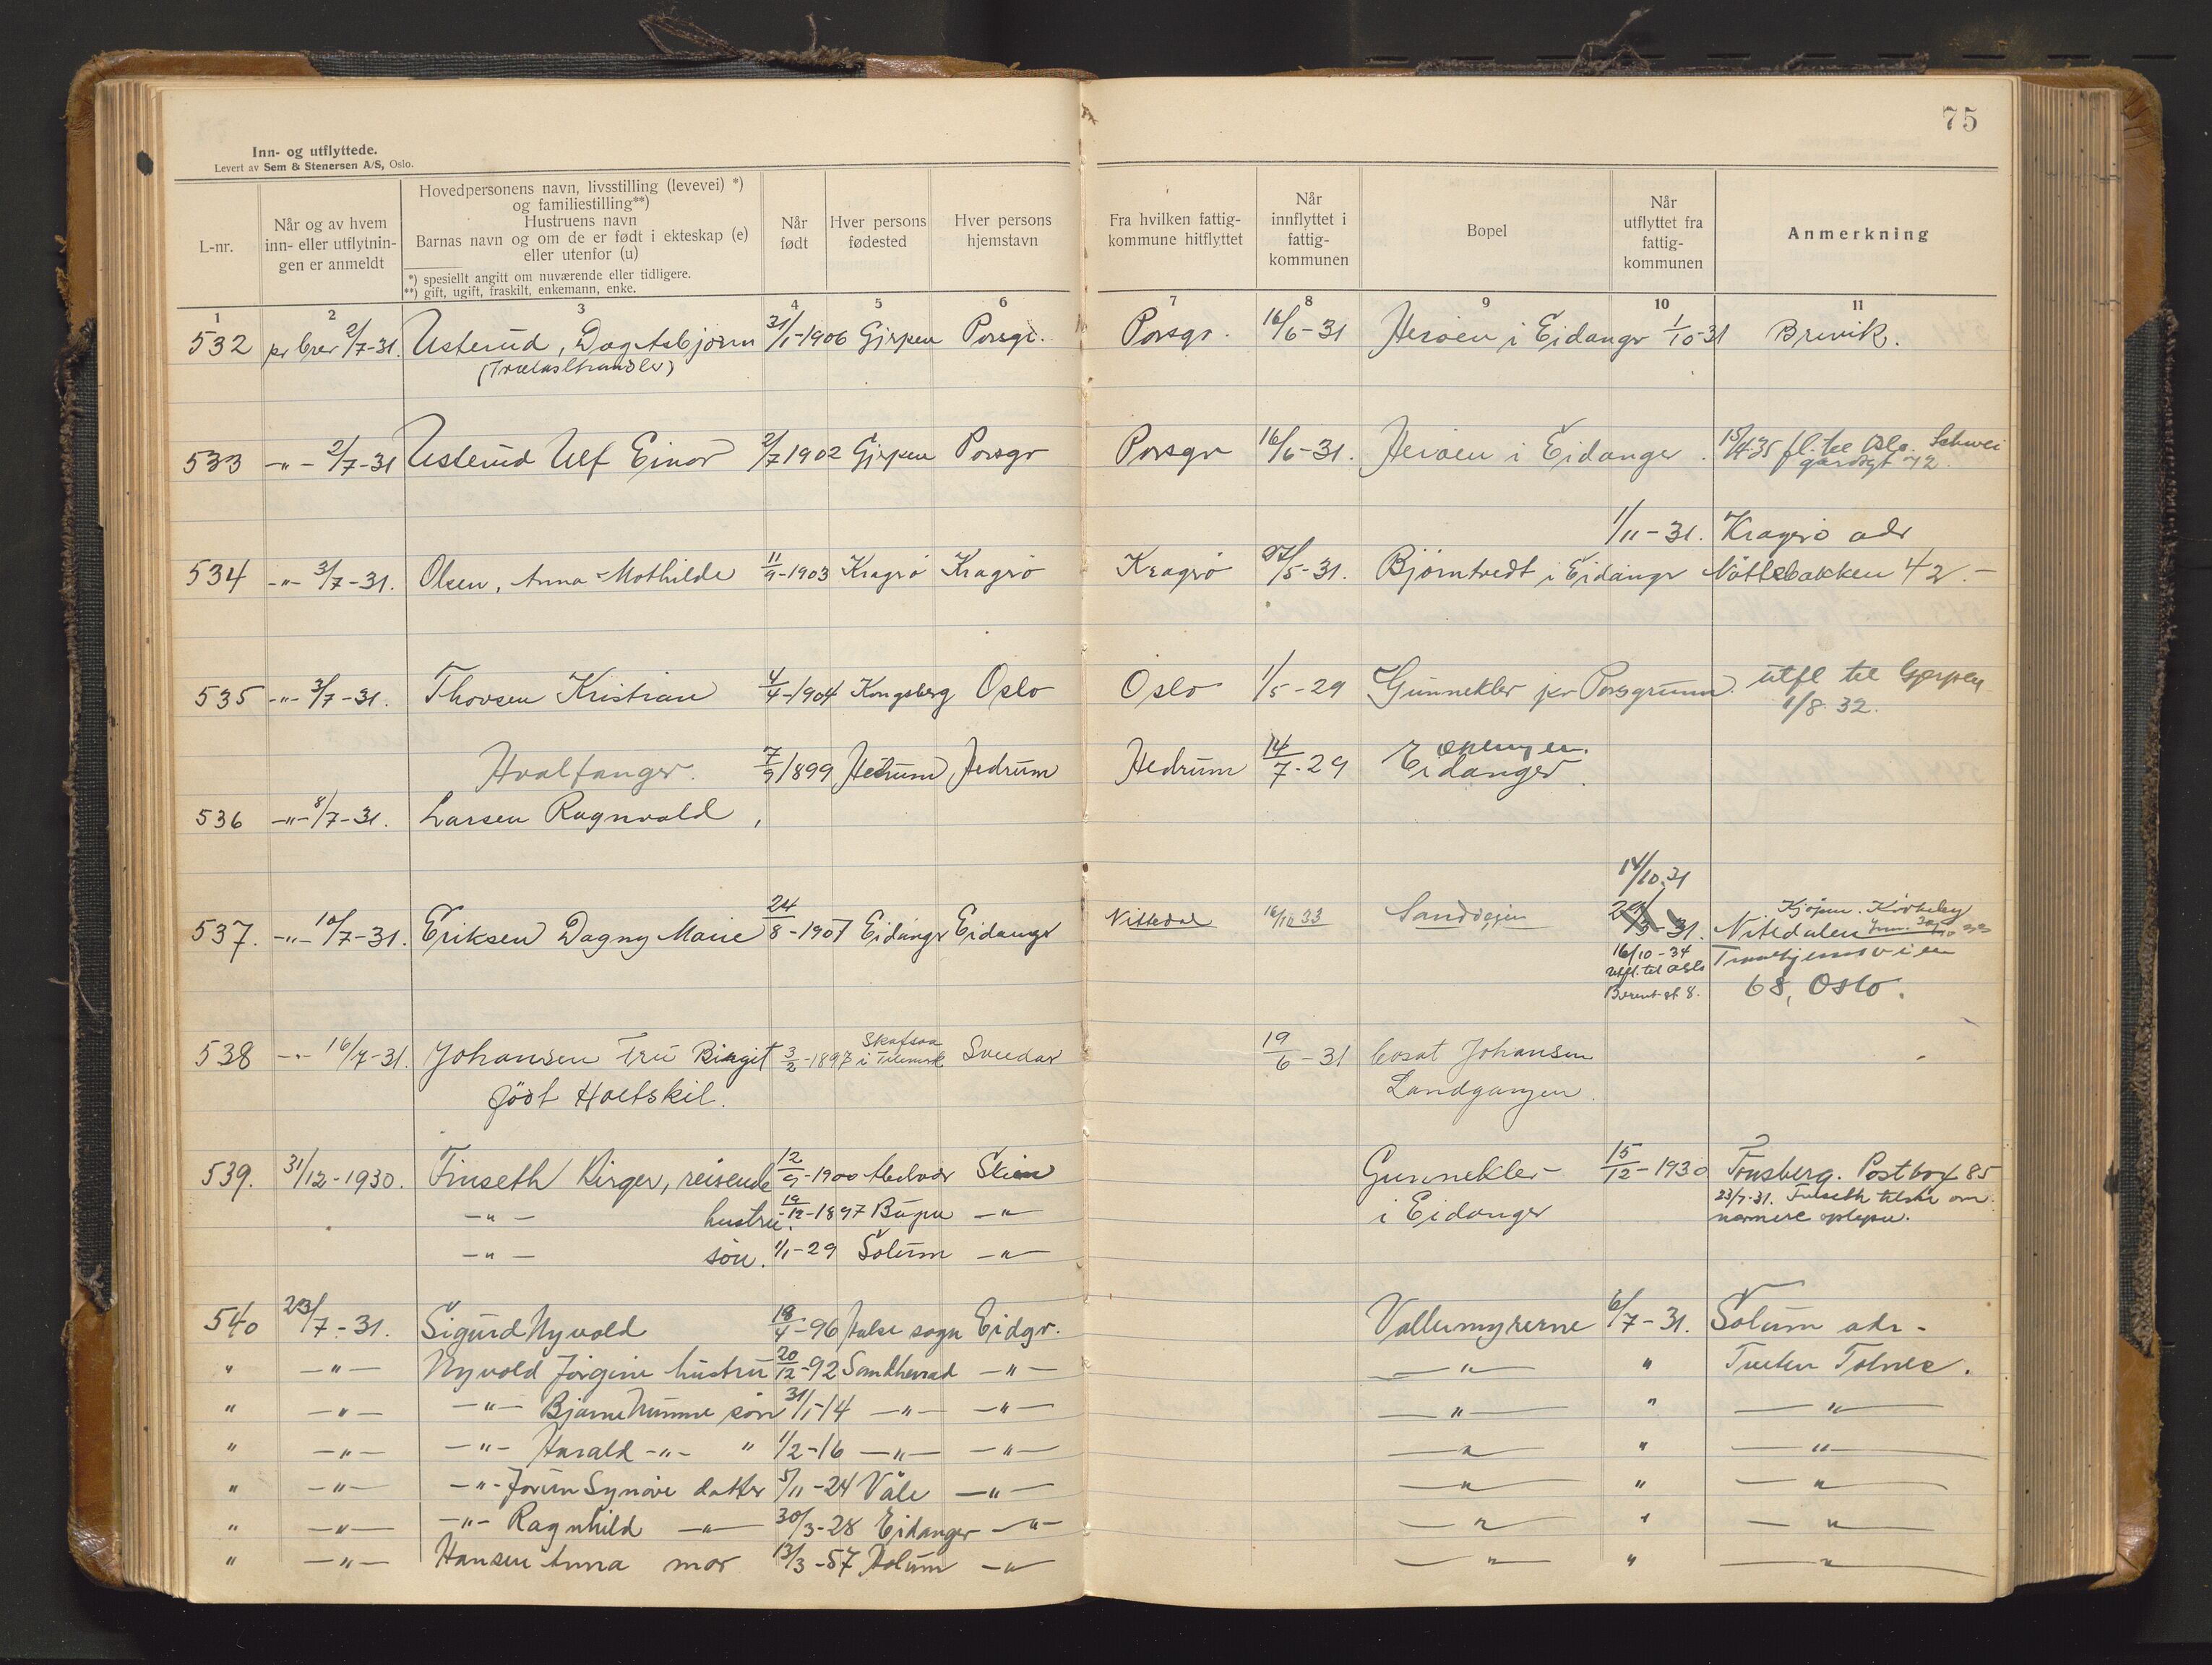 75
Inn- og utflyttede.
Levert av Sem & Stenersen A/S, Oslo.
L-nr.
Når og av hvem
inn- eller utflytnin-
gen er anmeldt
Hovedpersonens navn, livsstilling (levevei) *)
og familiestilling**)
Hustruens navn
Barnas navn og om de er født i ekteskap (e)
eller utenfor (u)
*) spesiellt angitt om nuværende eller tidligere.
**) gift, ugift, fraskilt, enkemann, enke.
Når
født
Hver persons
fødested
Hver persons
hjemstavn
Fra hvilken fattig-
kommune hitflyttet
Når
innflyttet i
fattig-
kommunen
Bopel
Når
utflyttet fra
fattig-
kommunen
Anmerkning
1 2 3 4 5 6 7 8 9 10 11
532 pr brev 2/7-31. Usterud, Dag Asbjørn 31/1-1906 Gjerpen Porsgr. Porsgr. 16/6-31 Herøen i Eidangr 1/10-31 Brevik.
(Trælasthandler)
533 -"- 2/7-31 Usterud Ulf Einar 2/7 1902 Gjerpen Porsgr Porsgr 16/6-31. Herøen i Eidanger. 15/4-35 fl. til Oslo. Schwei
gårdsgt 42.
1/11-31. Kragerø adr
534 -"- 3/7-31. Olsen, Anna Mathilde 11/9-1903 Kragrø Kragrø Kragrø 27/5-31. Bjørntvedt i Eidangr Nöttebakken 42.-
535 -"- 3/7-31. Thovsen Kristian 4/4-1904 Kongsberg Oslo Oslo 1/5-29 Gunnekler pr Porsgrunn. utfl til Gjerpen
1/8.32.
Hvalfanger. 7/9 1899 Hedrum, Hedrum Hedrum 14/7-29 Eidanger.
536 -"- 8/7-31. Larsen Ragnvald,
14/10.31
537. -"- 10/7-31. Eriksen Dagny Marie 24/8-1907 Eidangr Eidangr Nittedal 16/10 33 Sandvejen 29/3-31. Nitedalen
16/10-34
utfl. til Oslo
68, Oslo.
538 -"- 16/7-31. Johansen Fru Birgit 3/2-1897 Skafsaa
i Telemrk 19/6-31 Johansen
født Holtskil. Landgangen.
539. 31/12-1930. Finseth Birger, reisende 12/9-1900 Skien Gunnekler- 15/12-1930 Tønsberg. Postbox 85
-"- hustru. 19/12-1897 -"- i Eidanger 23/7-31.
-"- søn. 1/1-29 Solum -"-
540 23/7-31. Sigurd Nyvold 18/4-96 Halse sogn Eidgr. Vallermyrerne 6/7-31. Solum adr-
" -"- Nyvold Jørgine hustru 20/12-92 Sandherad -"- -"- "
" -"- -"- Bjarne Numme søn 31/1-14 -"- -"- -"- " -"-
" -"- -"- Harald -"- " 1/2-16 -"- -"- -"- " -"-
" -"- -"- Jorun Synøve datter 5/11-24 Våle -"- -"- " -"-
" -"- -"- Ragnhild -"- 30/3-28 Eidanger -"- -"- " -"-
" -"- Hansen Anna mor 13/3-57 Holum -"- -"- " -"-